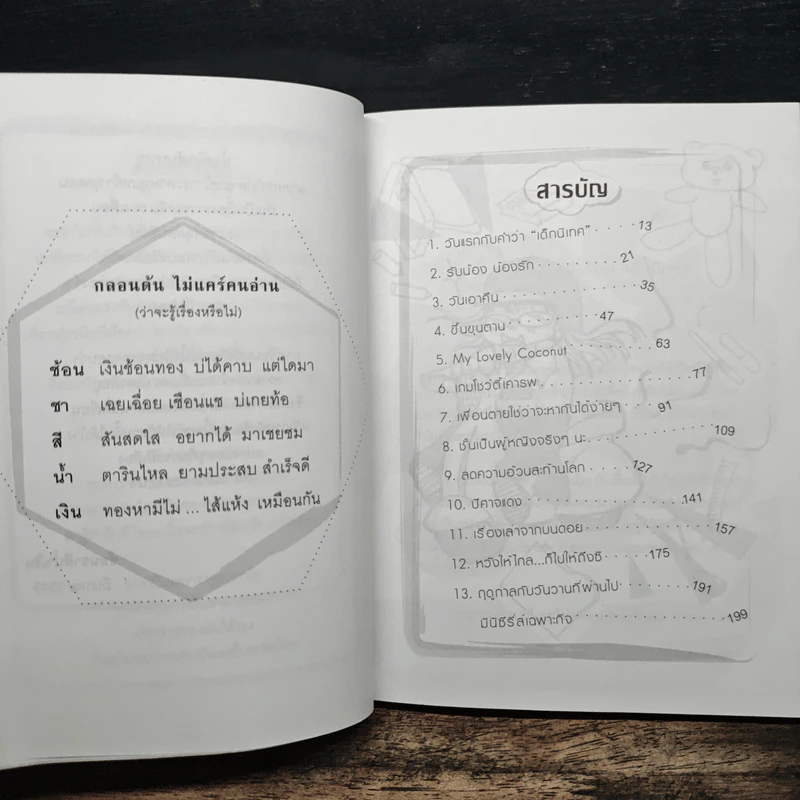 กลอนดัน ไม่แคร์คนอ่าน
(ว่าจะรู้เรื่องหรือไม่)
ช้อน เงินช้อนทอง บ่ได้คาบ แต่ใดมา
ชา เฉยเฉื่อย เชือนแช บ่เกยท้อ
สี สันสดใส อยากได้ มาเชยชม
น้ำ ตารินไหล ยามประสบ สำเร็จดี
เงิน ทองหามีไม่ ... ไส้แห้ง เหมือนกัน
สารบัญ
1. วันแรกกับคำว่า "เด็กนิเทศ" ..... 13
2. รับน้อง น้องรัก ........ 21
3. วันเอาคืน ............ 35
4. ขึ้นขุนตาน ......... 47
5. My Lovely Coconut ......... 63
6. เกมโชว์ดี๊เคารพ ............... 77
7. เพื่อนตายใช่ว่าจะหากันได้ง่ายๆ ..... 91
8. ชั้นเป็นผู้หญิงจริงๆ นะ ............ 109
9. ลดความอ้วนสะท้านโลก ..... 127
10. ปีศาจแดง ............... 141
11. เรื่องเล่าจากบนดอย ............... 157
12. หวังให้ไกล...ก็ไปให้ถึงซิ .... 175
13. ฤดูกาลกับวันวานที่ผ่านไป ........ 191
มินิซีรี่ส์เฉพาะกิจ ................ 199